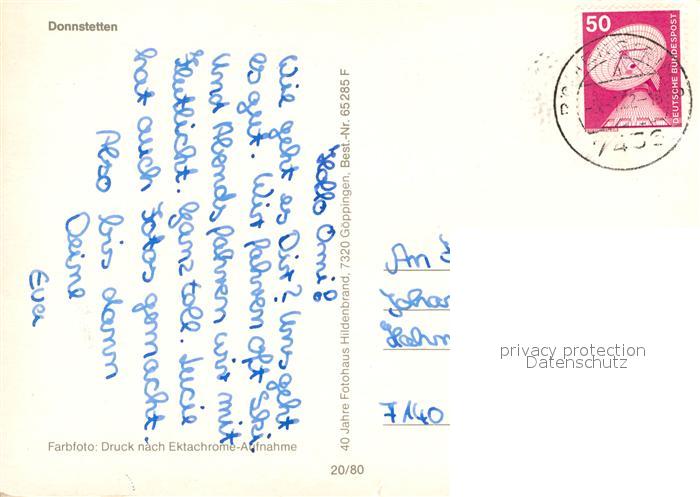 Donnstetten
50
DEUTSCHE BUNDESPOST
Hallo Omi!
Wie geht es Dir? Uns geht
es gut. Wir fahren oft Ski.
Und Abends fahren wir mit
Flutlicht. Ganz toll. Lucie
hat auch Fotos gemacht.
Also bis dann
Deine
Eva
40 Jahre Fotohaus Hildenbrand, 7320 Göppingen, Best.-Nr. 65285 F
An
7140
privacy protection
Datenschutz
Farbfoto: Druck nach Ektachrome-Aufnahme
20/80